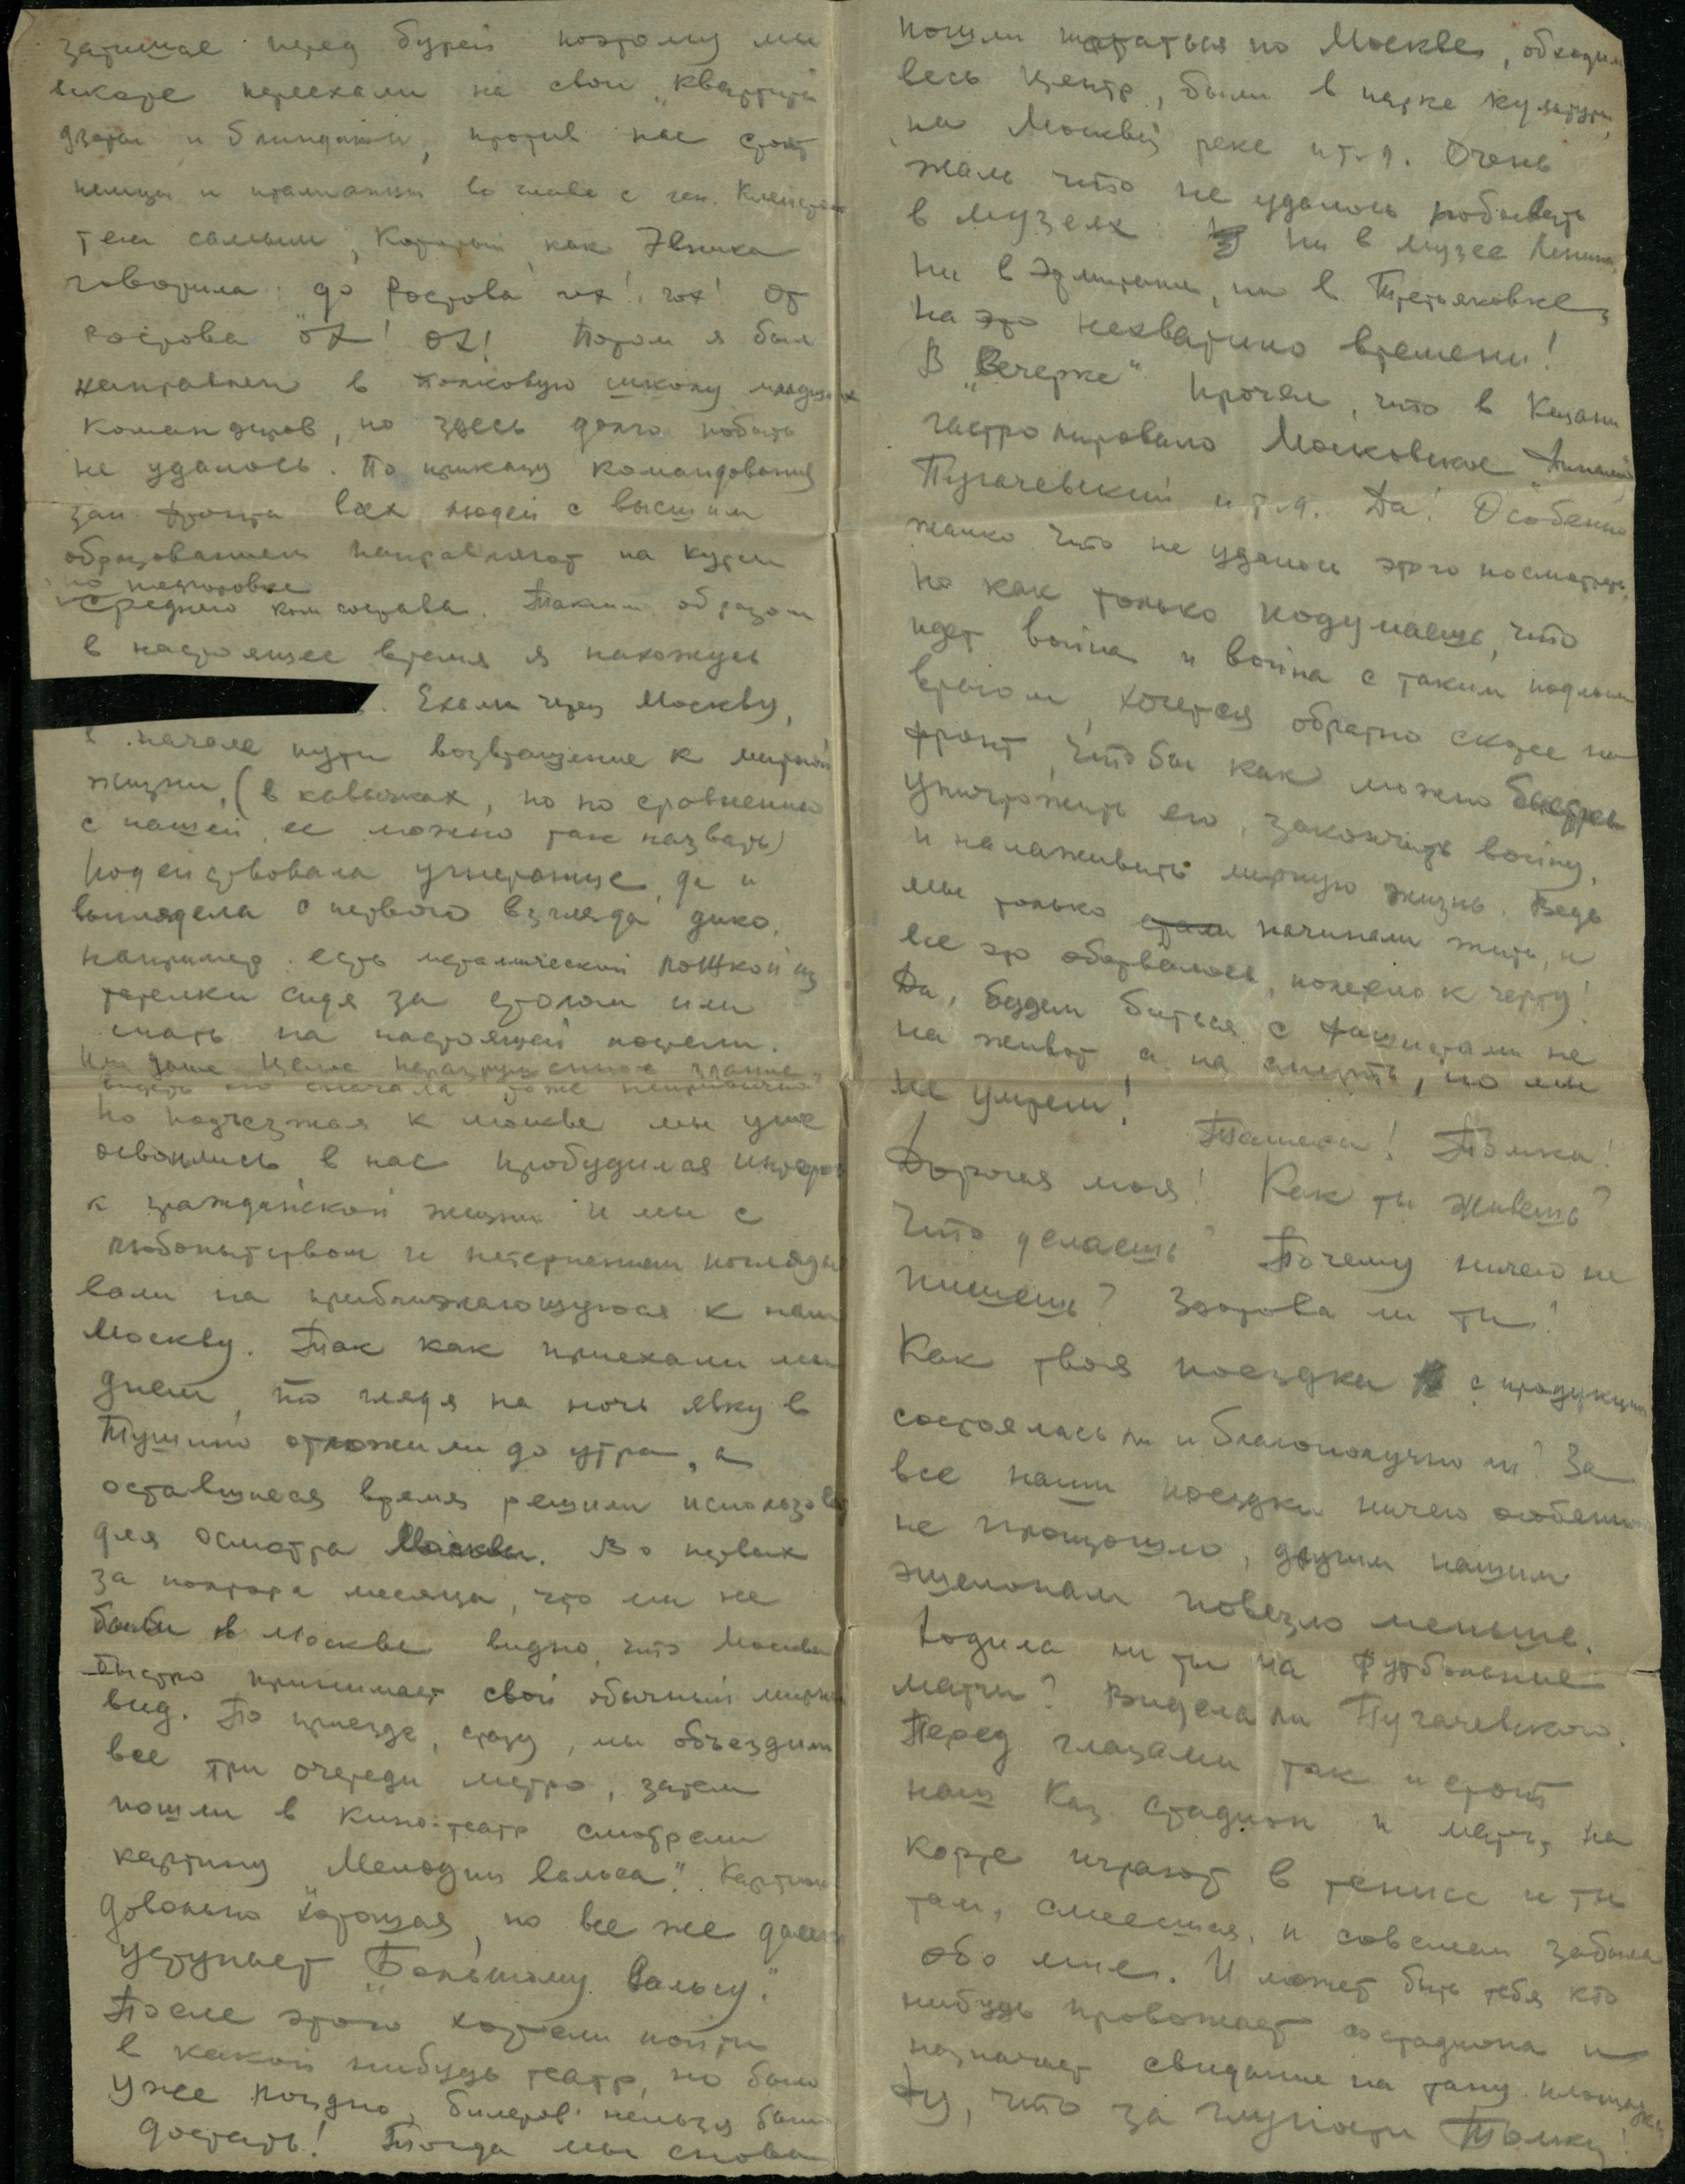 затишье перед бурей поэтому мы
вскоре переехали на свои „квартиры
дзоты и блиндажи, против нас стоят
немцы и итальянцы во главе с ген. Клейстом
тем самым, который как Эвника
говорила: до Ростова гох! гох! От
Ростова ох! ох! Потом я был
направлен в полковую школу младших
командиров, но здесь долго побыть
не удалось. По приказу командования
зап фронта всех людей с высшим
образованием направляют на курсы
по подготовке
среднего ком состава. Таким образом
в настоящее время я нахожусь
. Ехали через Москву,
в начале пути возвращение к мирной
жизни, (в кавычках, но по сравнению
с нашей ее можно так назвать)
подействовала угнетающе, да и
выглядела с первого взгляда дико,
например есть металической ложкой из
тарелки сидя за столом или
спать на настоящей постели.
Или даже целое неразрушенное здание
видеть его сначала тоже непривычно
Но подъезжая к москве мы уже
освоились в нас пробудился интерес
к гражданской жизни и мы с
любопытством и нетерпением погляды
вали на приближающуюся к нам
Москву. Так как приехали мы
днем, то глядя на ночь явку в
Тушино отложили до утра, а
оставшееся время решили использовать
для осмотра Москвы. Во первых
за полтора месяца, что мы не
были в Москве видно, что Москва
быстро принимает свой обычный мирный
вид. По приезде, сразу, мы объездили
все три очереди метро, затем
пошли в кино-театр смотрели
картину „Мелодии вальса". Картина
довольно хорошая, но все же далеко
уступает „Большому вальсу".
После этого хотели пойти
в какой нибудь театр, но было
уже поздно, билетов нельзя было
достать! Тогда мы снова
пошли шататься по Москве, обходили
весь центр, были в парке культуры,
на Москве реке и т.д. Очень
жаль что не удалось побывать
в музеях. Ни в музее Ленина,
ни в Эрмитаже, ни в Третьяковке,
на это нехватило времени!
В „Вечерке" прочел, что в Казани
гастролировало Московское „Динамо",
Пугачевский и т.д. Да! Особенно
жалко что не удалось этого посмотреть.
Но как только подумаешь, что
идет война и война с таким подлым
врагом, хочется обратно скорее на
фронт, чтобы как можно быстрее
уничтожить его, закончить войну,
и налаживать мирную жизнь. Ведь
мы только стали начинали жить, и
все это оборвалось, полетело к черту!
Да, будем биться с фашистами не
на живот а на смерть, но мы
не умрем!
Томка! Томка!
Дорогая моя! Как ты живешь?
Что делаешь? Почему ничего не
пишешь? Здорова ли ты?
Как твоя поездка с продукцией
состоялась ли и благополучно ли? За
все наши поездки ничего особенного
не произошло, другим нашим
эшелонам повезло меньше.
Ходила ли ты на футбольные
матчи? Видела ли Пугачевского.
Перед глазами так и стоит
наш Каз. стадион и матч, на
корте играют в теннис и ты
там, смеешься, и совсем забыла
обо мне. И может быть тебя кто
нибудь провожает со стадиона и
назначает свидание на танц. площадке
Фу, что за глупости Томка!